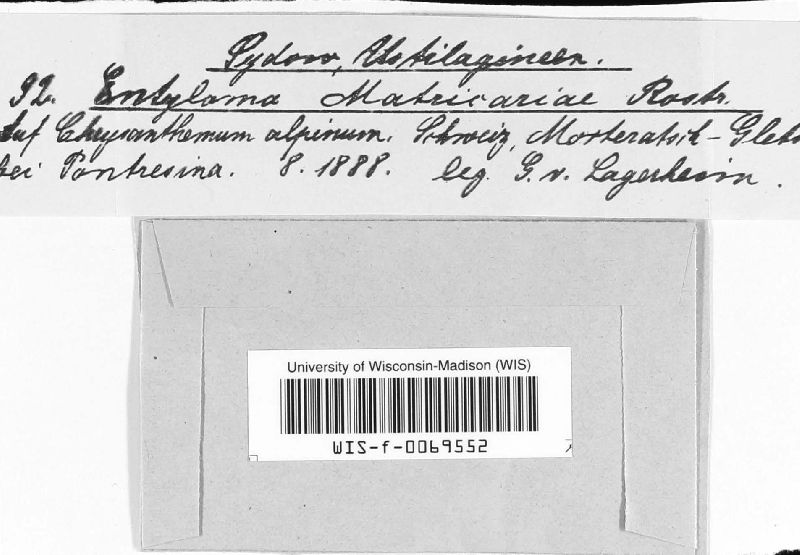 Sydow, Ustilagineen.
92. Entyloma Matricariae Rostr.
auf Chrysanthemum alpinum. Schweiz, Morteratsch-Gletsch
bei Pontresina. 8. 1888. leg. G. v. Lagerheim.
University of Wisconsin-Madison (WIS)
WIS-f-0069552